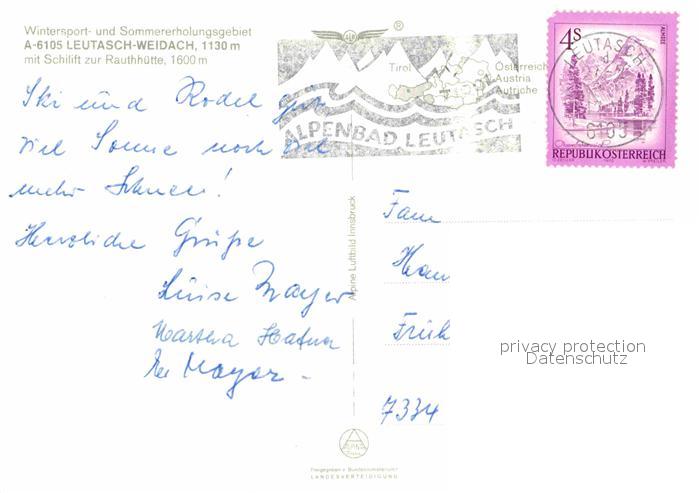 Wintersport- und Sommererholungsgebiet
A-6105 LEUTASCH-WEIDACH, 1130 m
mit Schilift zur Rauthhütte, 1600 m
Ski und Rodel gut
viel Sonne noch viel
mehr Schnee!
Herzliche Grüße
Luise Mayer
Martha Hafner
Mayer
Alpine Luftbild Innsbruck
®
Tirol
Österreich
Austria
Autriche
ALPENBAD LEUTASCH
4S
ALMSEE
LEUTASCH
6105
REPUBLIK ÖSTERREICH
Fam
Früh
7334
privacy protection
Datenschutz
Freigegeben v. Bundesministerium f.
LANDESVERTEIDIGUNG